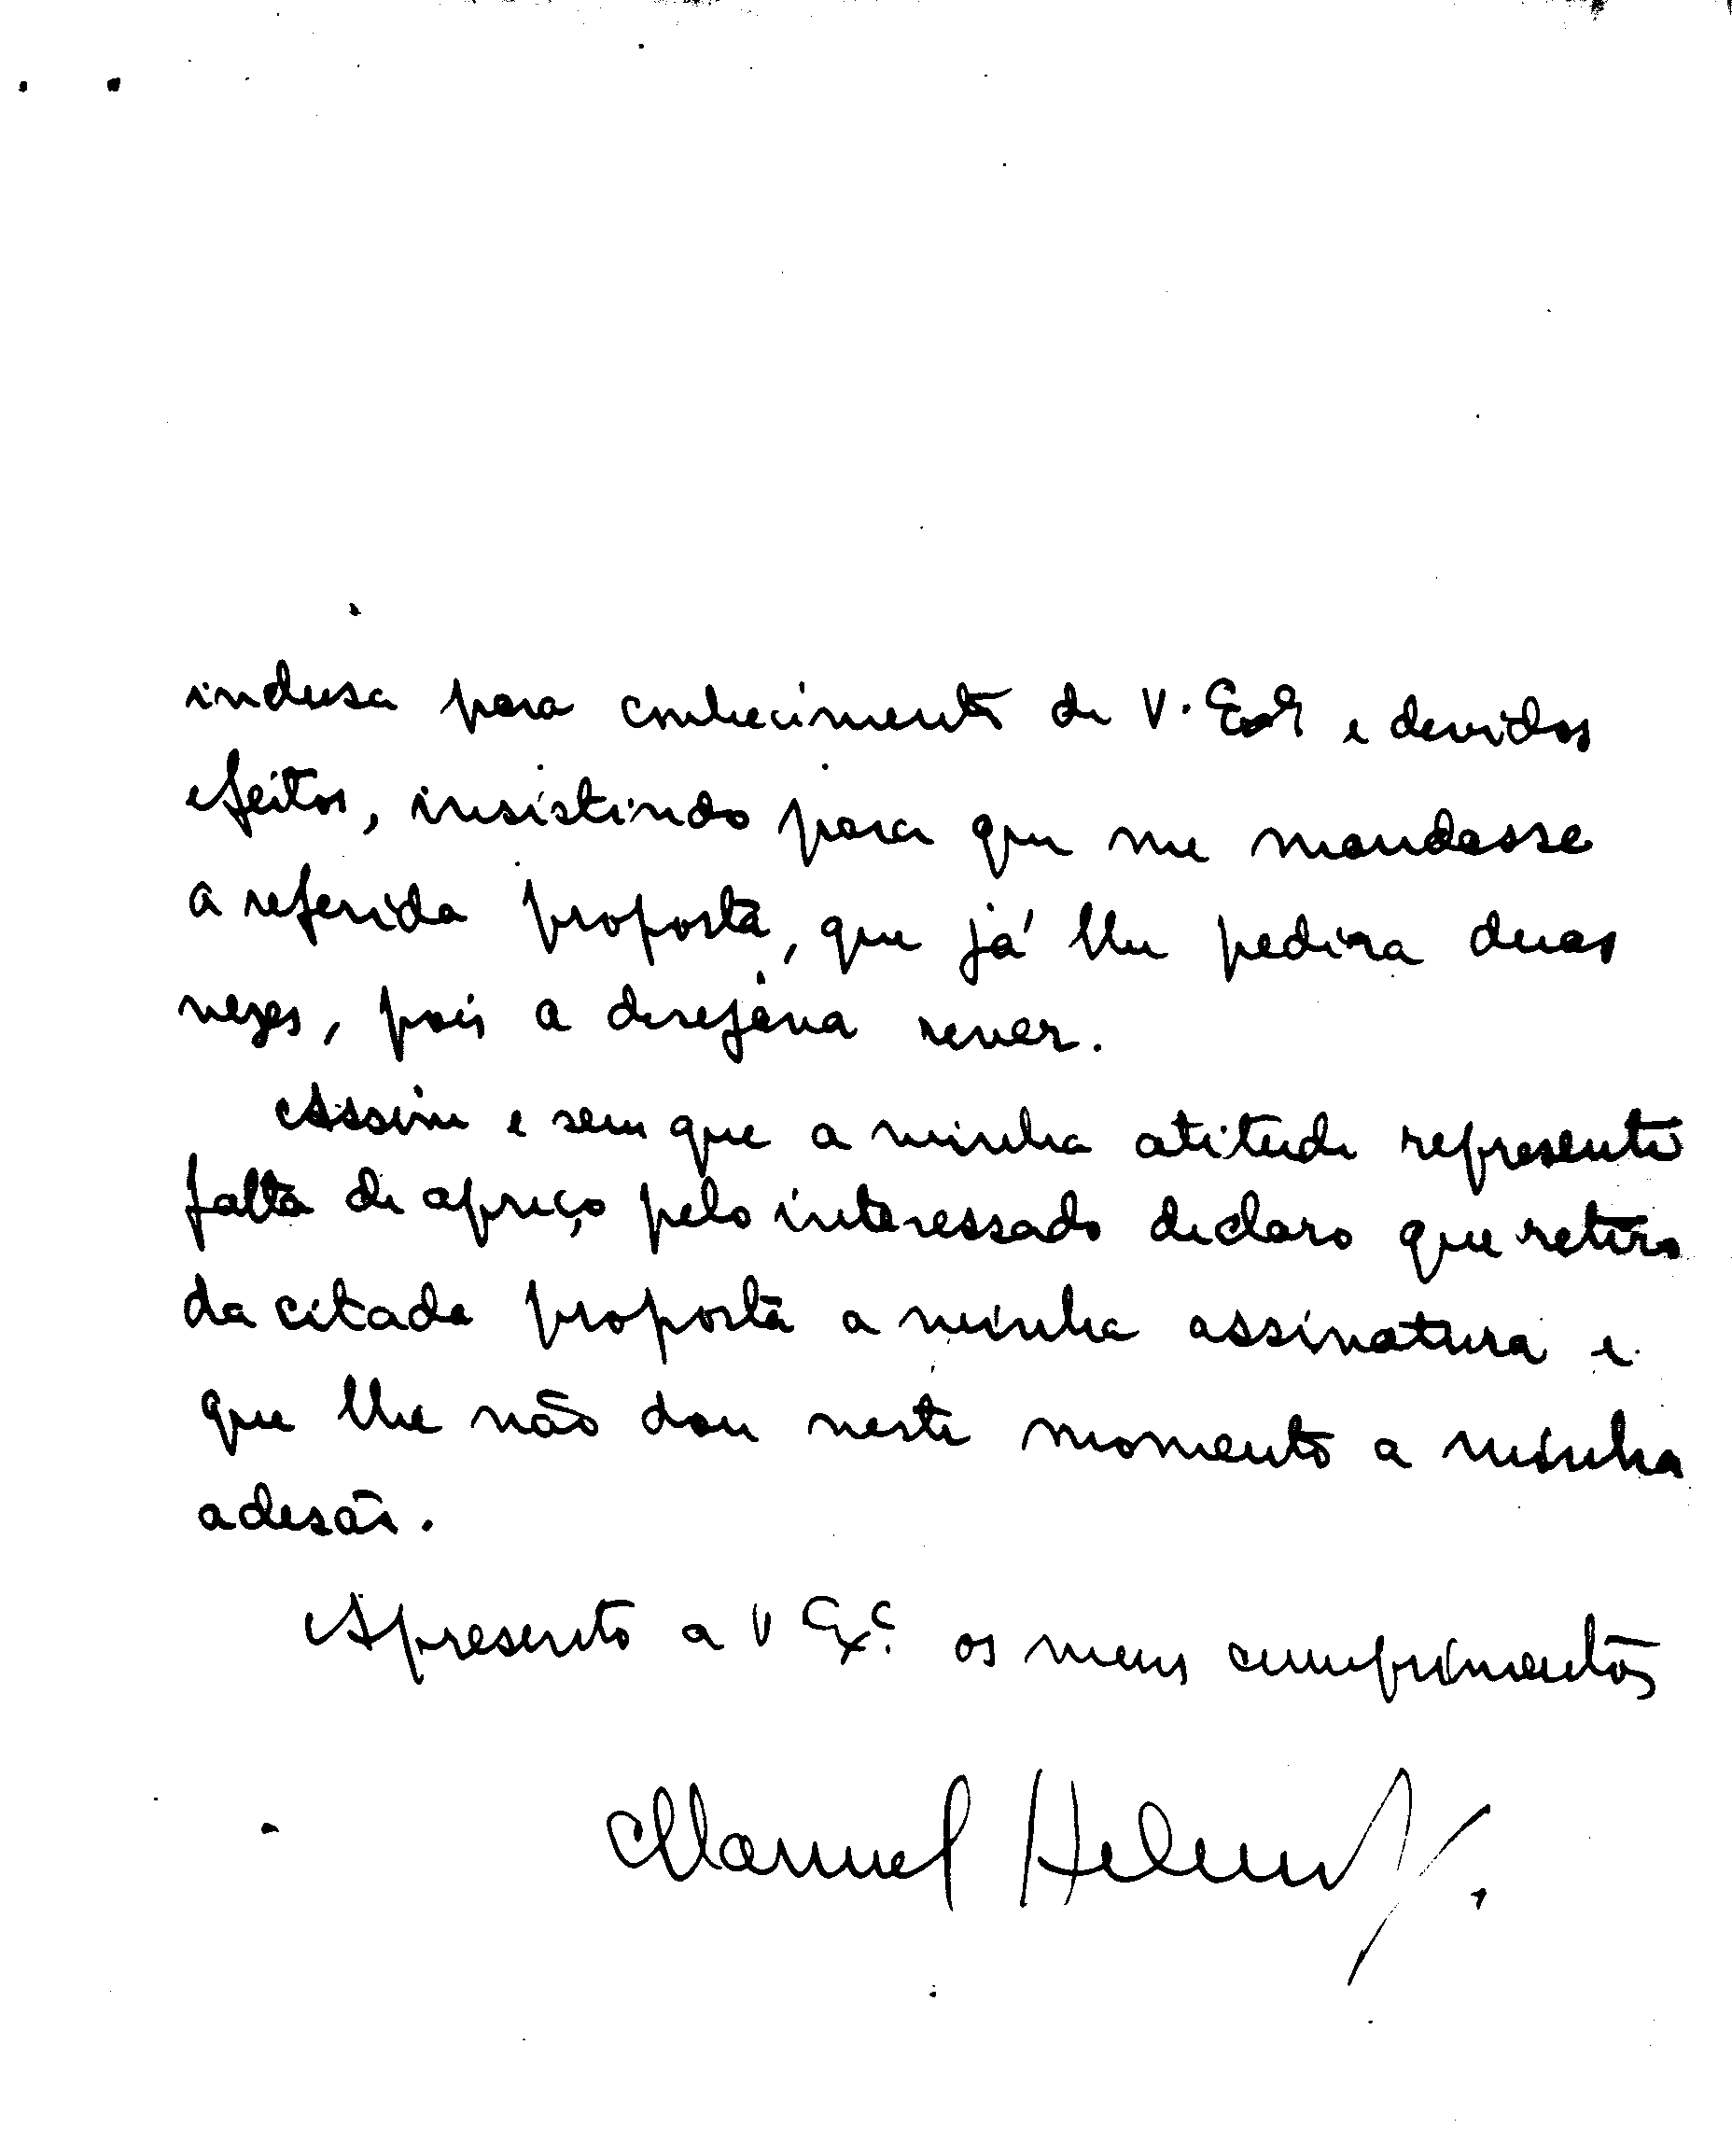 inclusa para conhecimento de V. Exª e devidos
efeitos, insistindo para que me mandasse
a referida proposta, que já lhe pedira duas
vezes, pois a desejava rever.
Assim e sem que a minha atitude represente
falta de apreço pelo interessado declaro que retiro
da citada proposta a minha assinatura e
que lhe não dou neste momento a minha
adesão.
Apresento a V Exª. os meus cumprimentos
Manuel